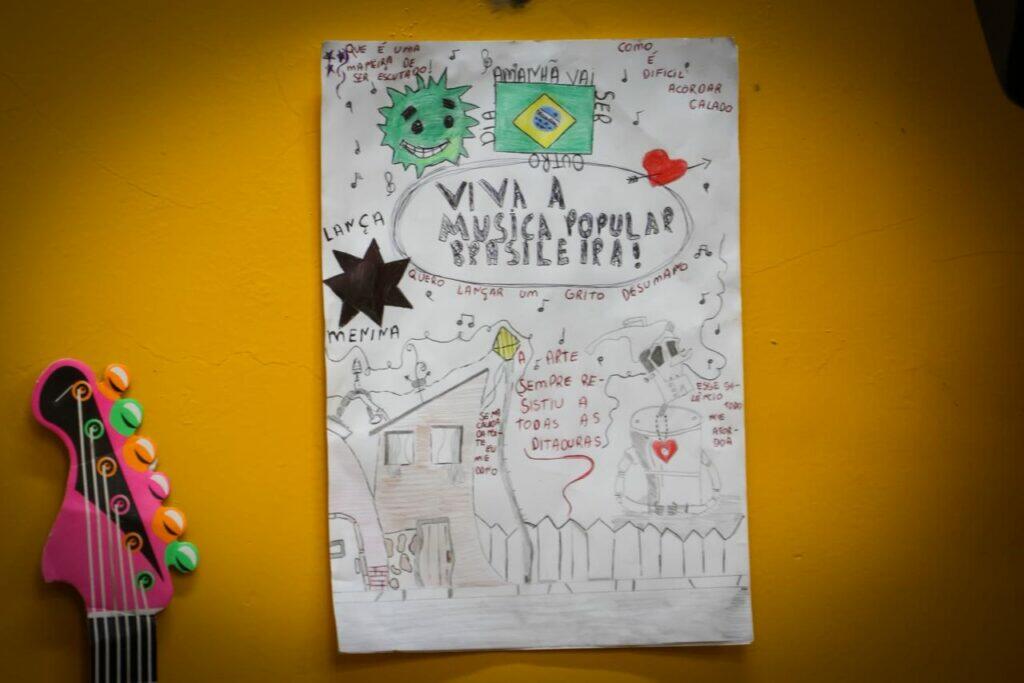 QUE É UMA
MANEIRA DE
SER ESCUTADO!
AMANHÃ VAI
SER
OUTRO
DIA
COMO
É
DIFICIL
ACORDAR
CALADO
VIVA A
MUSICA POPULAR
BRASILEIRA!
LANÇA
MENINA
QUERO LANÇAR UM GRITO DESUMANO
A ARTE
SEMPRE RE-
SISTIU A
TODAS AS
DITADURAS
SE NA
CALADA
DA NOI-
TE
EU
ME
DANO
ESSE SI-
LÊNCIO TODO
ME
ATOR-
DOA